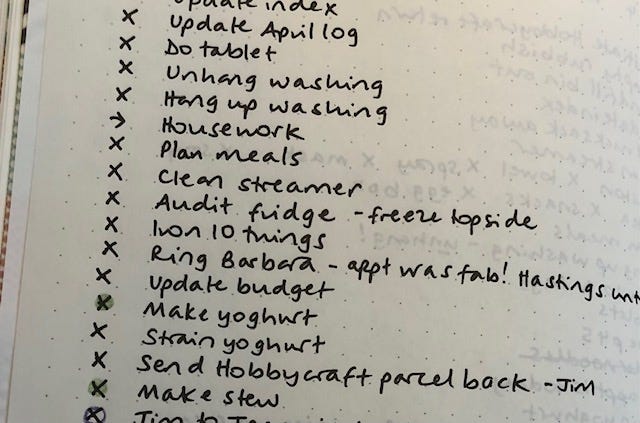 Update index
× Update April log
× Do tablet
× Unhang washing
× Hang up washing
→ Housework
× Plan meals
× Clean streamer
× Audit fridge - freeze topside
× Iron 10 things
× Ring Barbara - appt was fab! Hastings unt
× Update budget
× Make yoghurt
× Strain yoghurt
× Send Hobbycraft parcel back - Jim
× Make stew
× Jim to